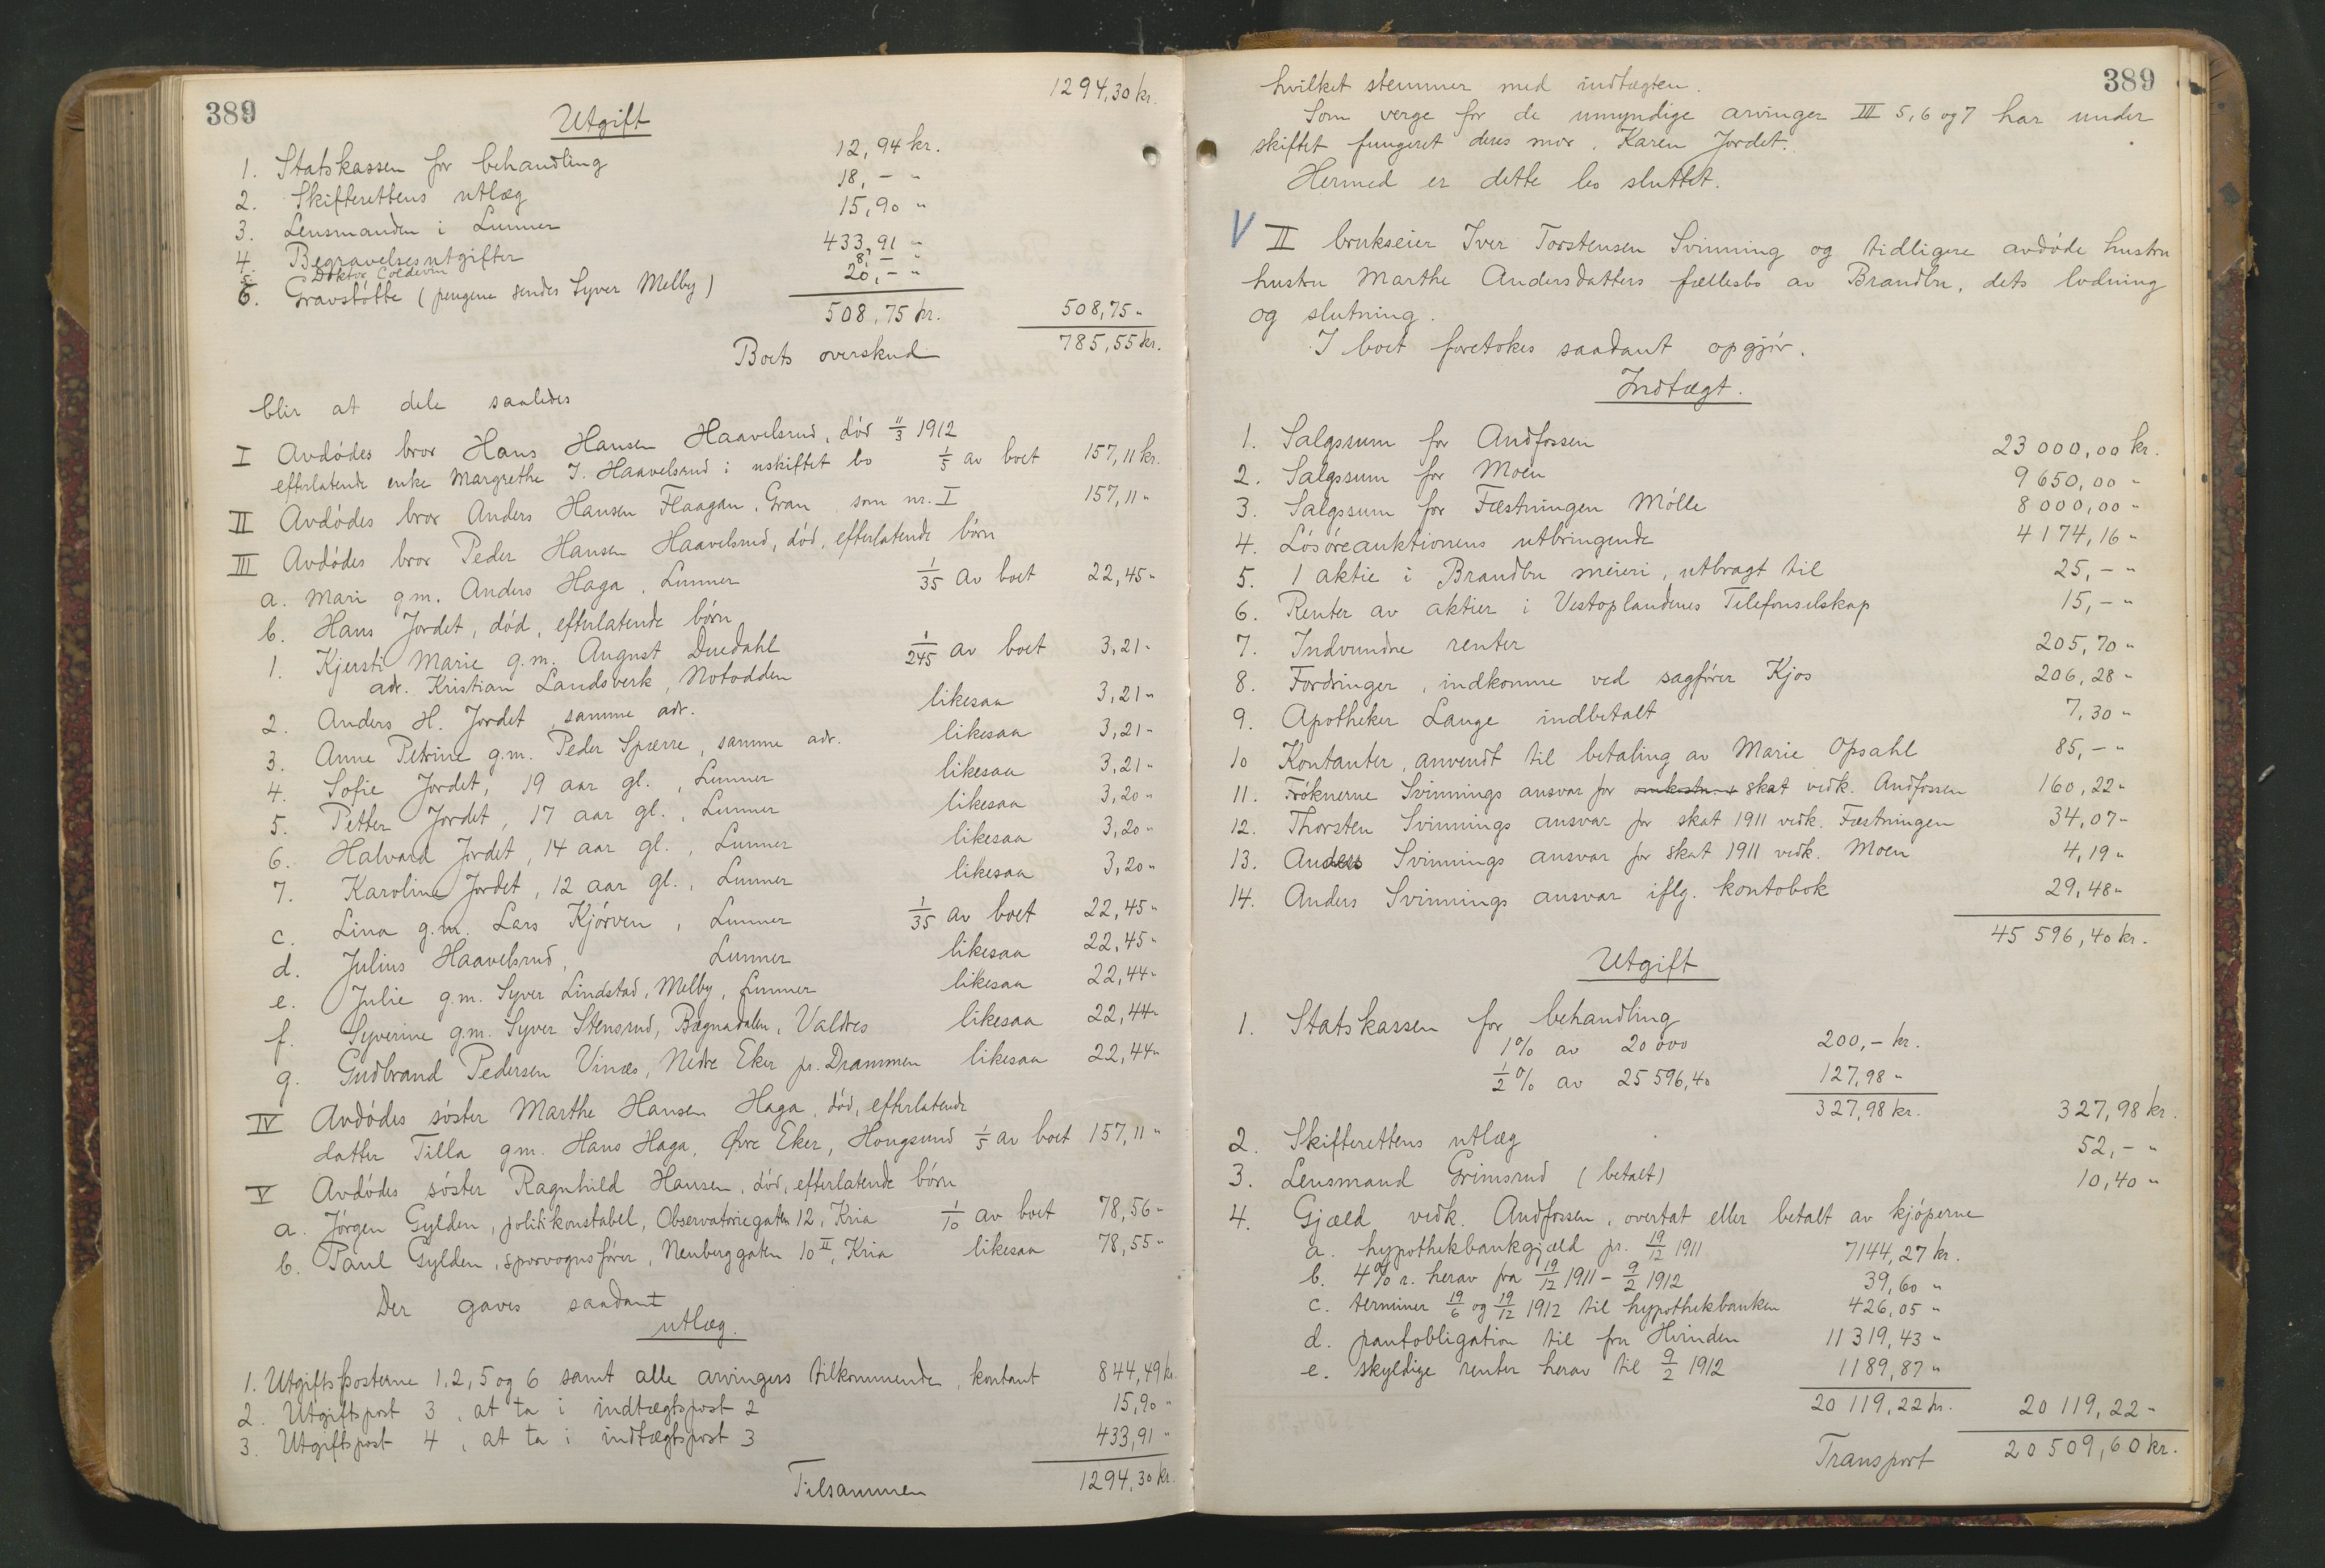 389
1294,30 kr.
Utgift
1. Statskassen for behandling 12,94 kr.
2. Skifterettens utlæg 18,- "
3. Lensmanden i Lunner 15,90 "
4. Begravelsesutgifter 433,91 "
5. Doktor Coldevin 8,- "
6. Gravstötte (pengene sendes Syver Melby) 20,- "
508,75 kr. 508,75 "
Boets overskud 785,55 kr.
blir at dele saaledes
I Avdödes bror Hans Hansen Haavelsrud, död 11/3 1912
efterlatende enke Margrethe J. Haavelsrud i uskiftet bo 1/5 av boet 157,11 kr.
II Avdödes bror Anders Hansen Flaagan, Gran, som nr. I 157,11 "
III Avdödes bror Peder Hansen Haavelsrud, död, efterlatende börn
a. Mari g.m. Anders Haga, Lunner 1/35 av boet 22,45 "
b. Hans Jordet, död, efterlatende börn
1. Kjersti Marie g.m. August Duedahl 1/245 av boet 3,21 "
adr. Kristian Landsverk, Notodden
2. Anders H. Jordet, samme adr. likesaa 3,21 "
3. Anne Petrine g.m. Peder Spærre, samme adr. likesaa 3,21 "
4. Sofie Jordet, 19 aar gl., Lunner likesaa 3,21 "
5. Petter Jordet, 17 aar gl., Lunner likesaa 3,20 "
6. Halvard Jordet, 14 aar gl., Lunner likesaa 3,20 "
7. Karoline Jordet, 12 aar gl., Lunner likesaa 3,20 "
c. Lina g.m. Lars Kjörven, Lunner 1/35 av boet 22,45 "
d. Julius Haavelsrud, Lunner likesaa 22,45 "
e. Julie g.m. Syver Lindstad, Melby, Lunner likesaa 22,44 "
f. Syverine g.m. Syver Stensrud, Bægnadalen, Valdres likesaa 22,44 "
g. Gudbrand Pedersen Vinæs, Nedre Eker pr. Drammen likesaa 22,44 "
IV Avdödes söster Marthe Hansen Haga, död, efterlatende
datter Tilla g.m. Hans Haga, Övre Eker, Hougsund 1/5 av boet 157,11 "
V Avdödes söster Ragnhild Hansen, död, efterlatende börn
a. Jörgen Gylden, politikonstabel, Observatoriegaten 12, Kria 1/10 av boet 78,56 "
b. Paul Gylden, sporvognsförer, Neuberggaten 10 II, Kria likesaa 78,55 "
Der gaves saadant
utlæg.
1. Utgiftsposterne 1, 2, 5 og 6 samt alle arvingers tilkommende, kontant 844,49 kr.
2. Utgiftspost 3, at ta i indtægtspost 2 15,90 "
3. Utgiftspost 4, at ta i indtægtspost 3 433,91 "
Tilsammen 1294,30 kr.
389
hvilket stemmer med indtægten.
Som verge for de umyndige arvinger III 5, 6 og 7 har under
skiftet fungeret deres mor, Karen Jordet.
Hermed er dette bo sluttet.
V II brukseier Iver Torstensen Svinning og tidligere avdöde hustru
hustru Marthe Andersdatters fællesbo av Brandbu, dets lodning
og slutning.
I boet foretokes saadant opgjör.
Indtægt.
1. Salgssum for Andfossen 23 000,00 kr.
2. Salgssum for Moen 9 650,00 "
3. Salgssum for Fæstningen Mölle 8 000,00 "
4. Lösöreauktionens utbringende 4 174,16 "
5. 1 aktie i Brandbu meieri, utbragt til 25,- "
6. Renter av aktier i Vestoplandenes Telefonselskap 15,- "
7. Indvundne renter 205,70 "
8. Fordringer, indkomne ved sagförer Kjos 206,28 "
9. Apotheker Lange indbetalt 7,30 "
10 Kontanter, anvendt til betaling av Marie Opsahl 85,- "
11. Fröknerne Svinnings ansvar for skat vedk. Andfossen 160,22 "
12. Thorsten Svinnings ansvar for skat 1911 vedk. Fæstningen 34,07 "
13. Anders Svinnings ansvar for skat 1911 vedk. Moen 4,19 "
14. Anders Svinnings ansvar iflg. kontobok 29,48 "
45 596,40 kr.
Utgift
1. Statskassen for behandling
1% av 20 000 200,- kr.
1/2 % av 25 596,40 127,98 "
327,98 kr. 327,98 kr.
2. Skifterettens utlæg 52,- "
3. Lensmand Grimsrud (betalt) 10,40 "
4. Gjæld vedk. Andfossen, overtat eller betalt av kjöperne
a. hypothekbankgjæld pr. 19/12 1911 7144,27 kr.
b. 4% r. herav fra 19/12 1911 - 9/2 1912 39,60 "
c. terminer 19/6 og 19/12 1912 til hypothekbanken 426,05 "
d. pantobligation til fru Hvinden 11 319,43 "
e. skyldige renter herav til 9/2 1912 1189,87 "
20 119,22 kr. 20 119,22 "
Transport 20 509,60 kr.